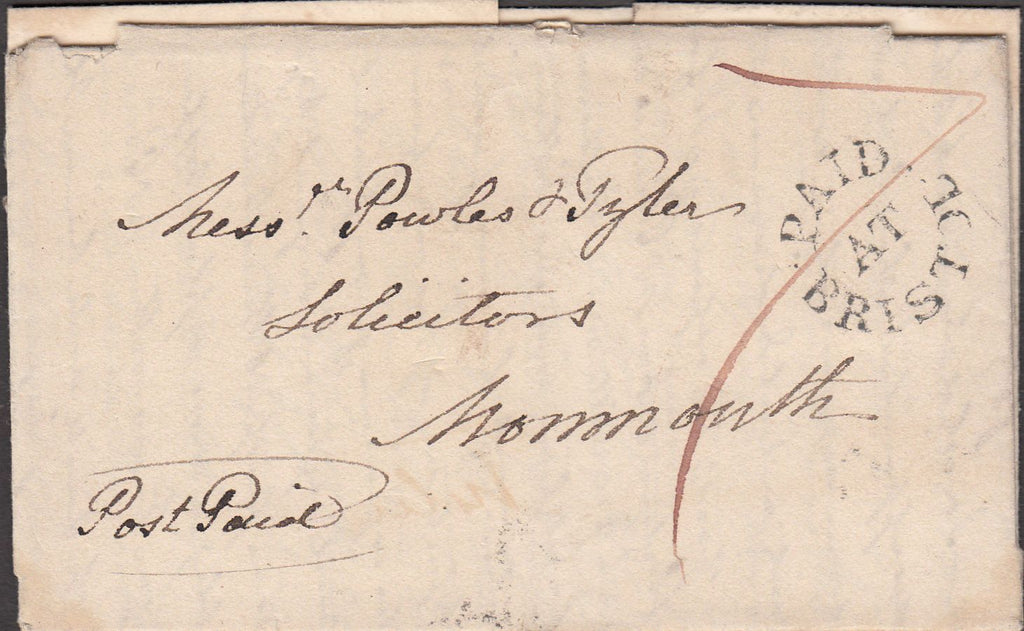 Mess.rs Powles & Tyler
Solicitors
Monmouth
Post Paid
7
PAID
AT
BRISTOL